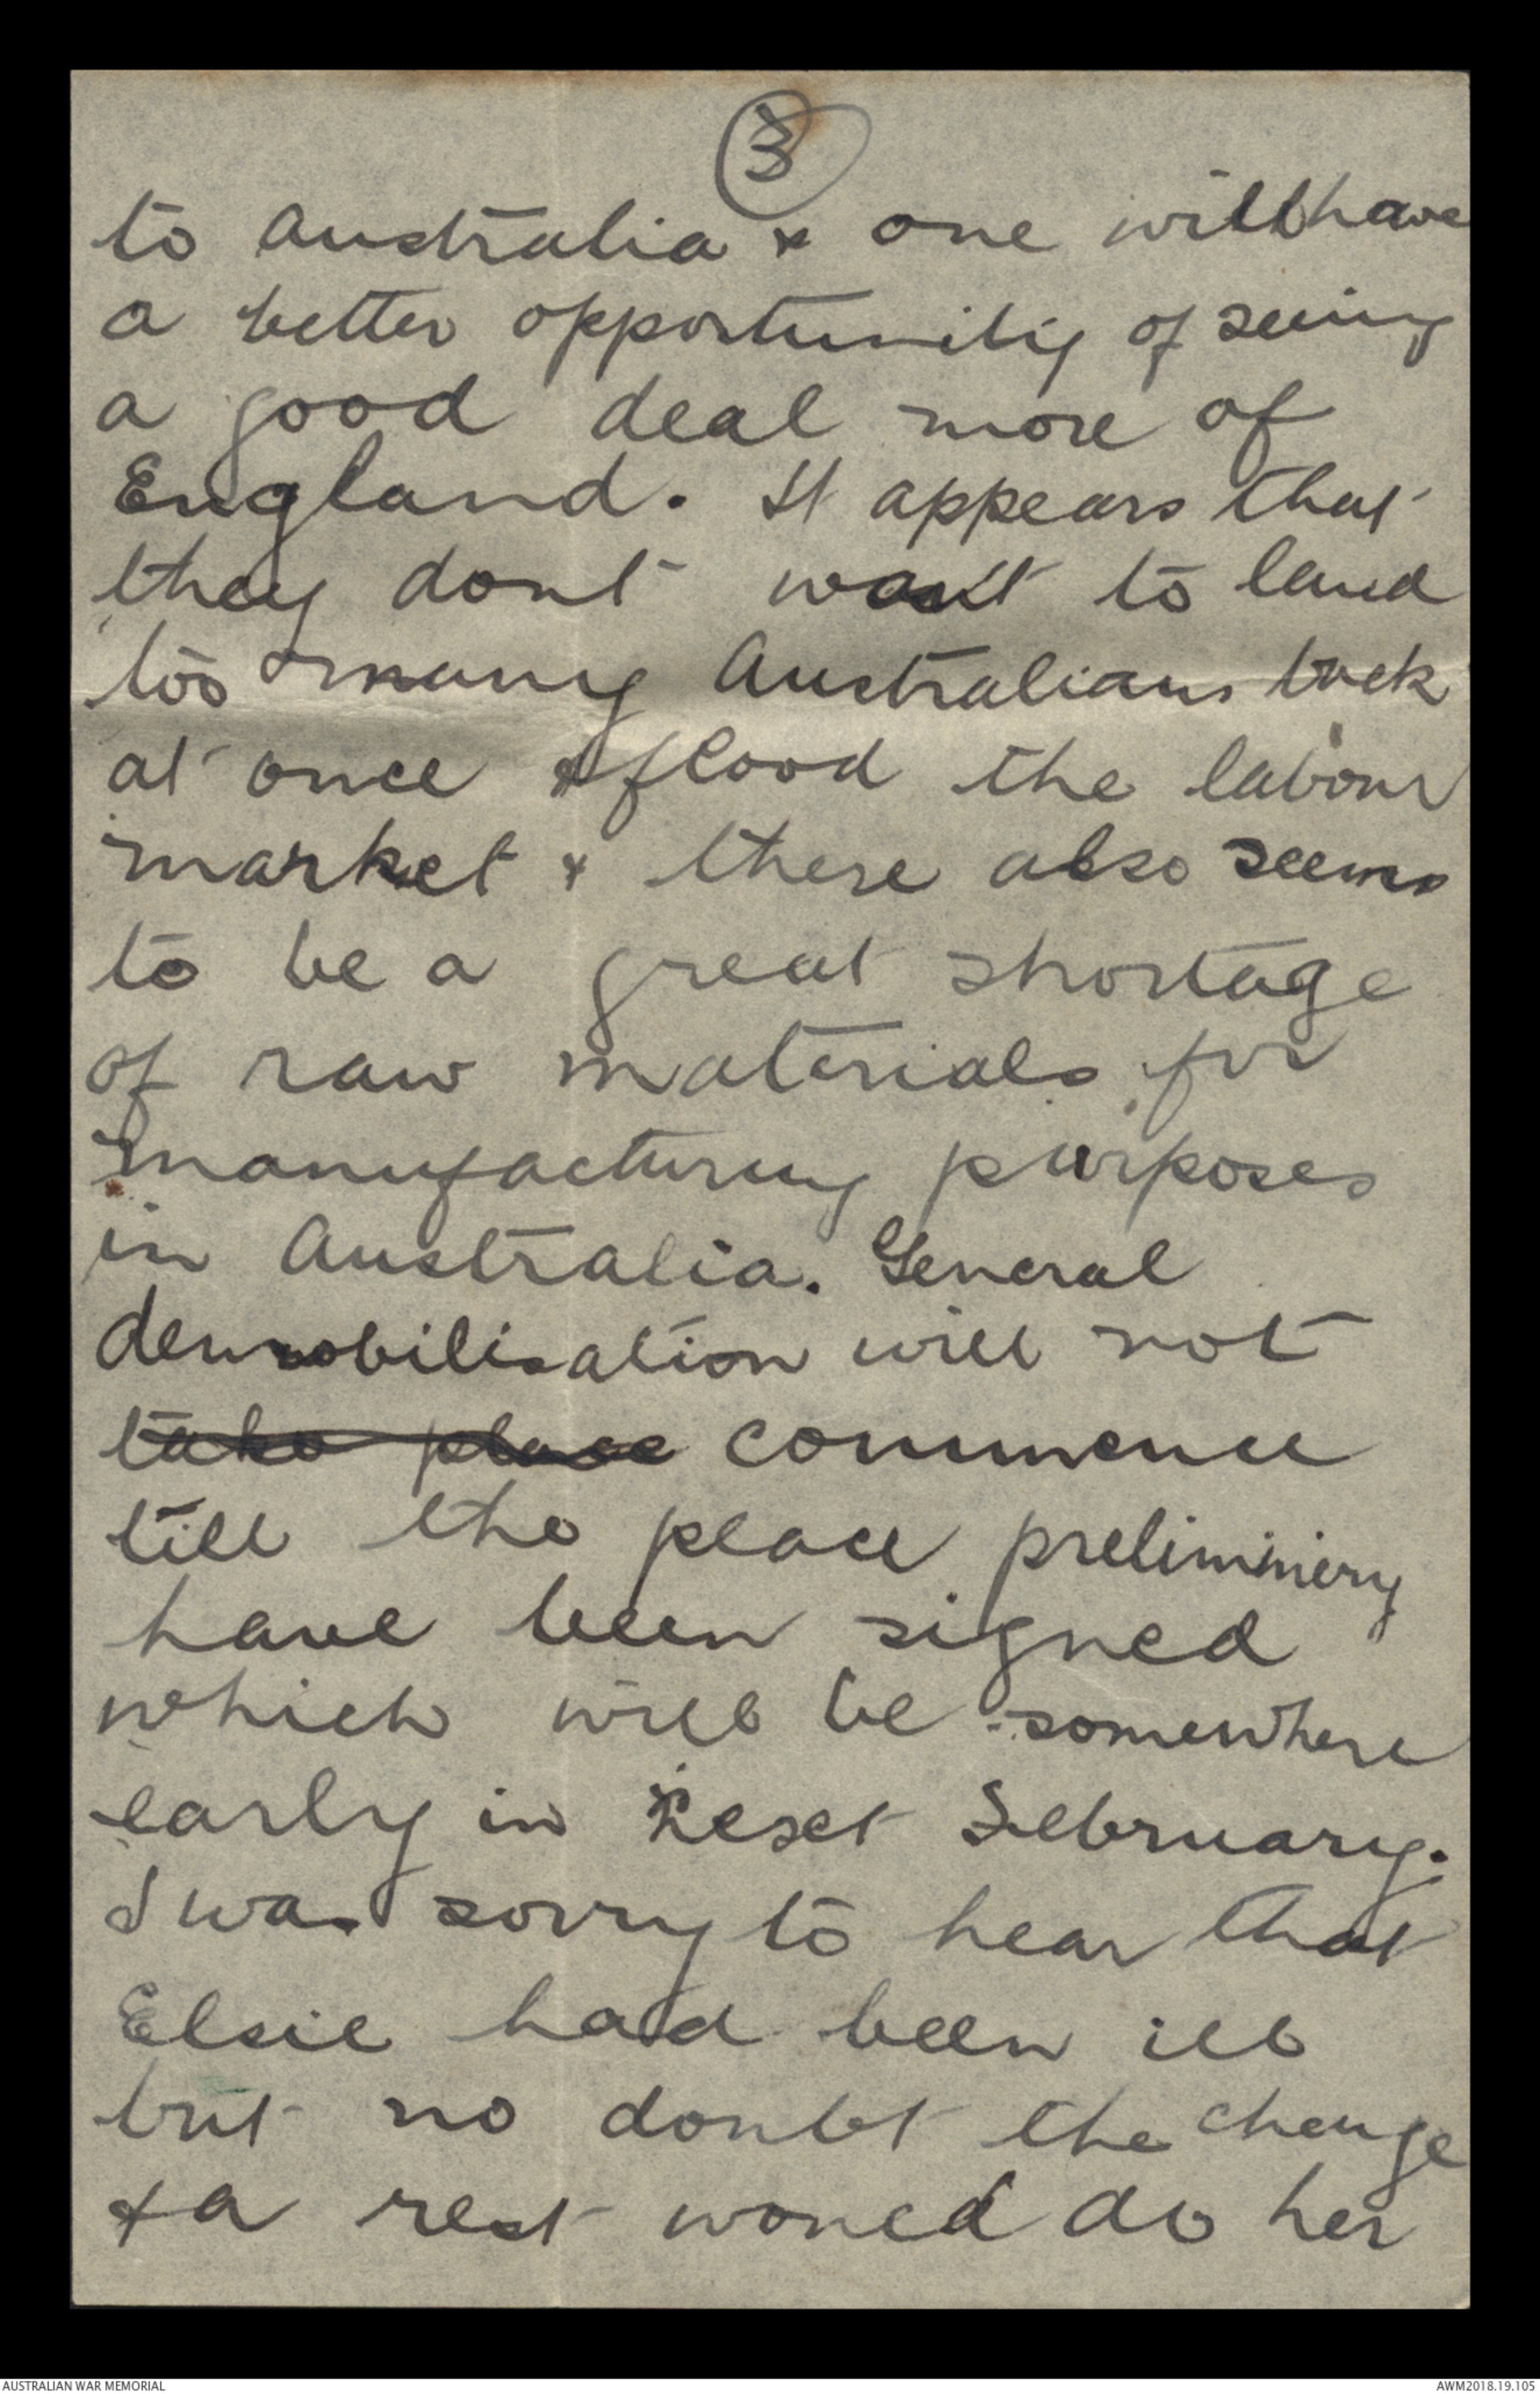 3
to Australia & one will have
a better opportunity of seeing
a good deal more of
England. It appears that
they dont want to land
too many Australians back
at once & flood the labour
market & there also seems
to be a great shortage
of raw materials for
manufacturing purposes
in Australia. General
demobilisation will not
take place commence
till the peace preliminery
have been signed
which will be somewhere
early in next February.
I was sorry to hear that
Elsie had been ill
but no doubt the change
& a rest would do her
AUSTRALIAN WAR MEMORIAL
AWM2018.19.105